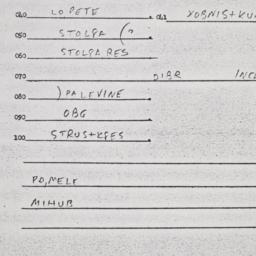 040 LO PETE . 041 XOBNIS+KU
050 STOLPA (
060 STOLPA RES
070 DIBR INCL
080 ) PALEVINE
090 OBG
100 STRUS+KPES
PD, MELE
MIHUB